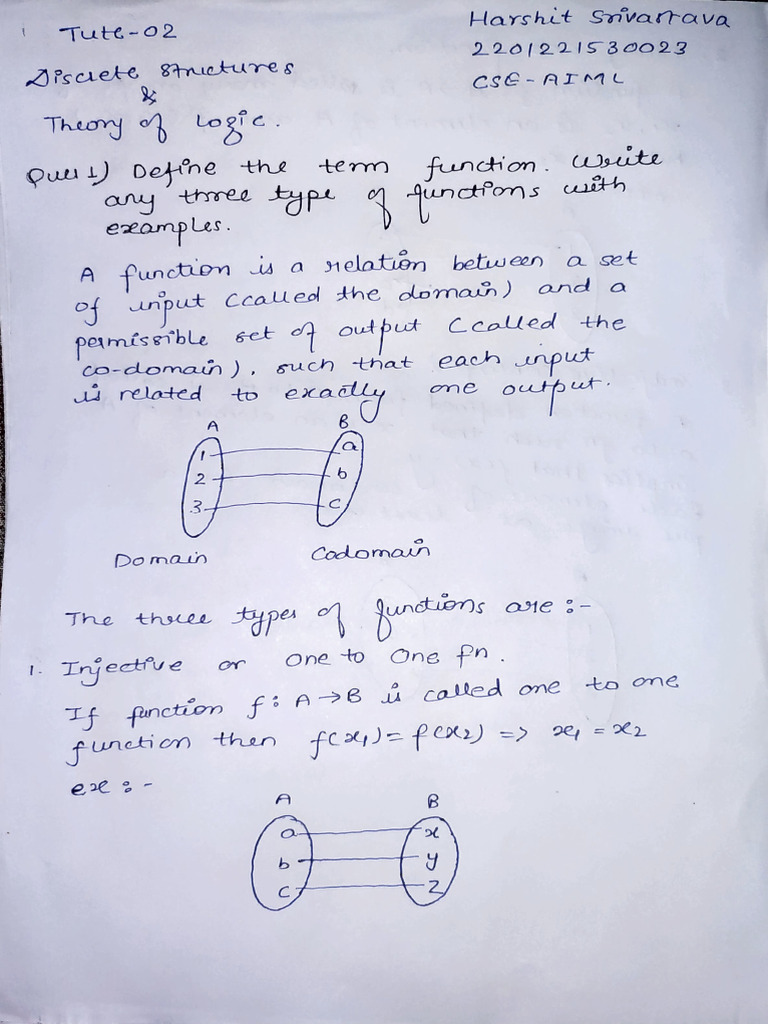 Tute-02
Harshit Srivastava
2201221530023
CSE-AIML
Discrete structures
&
Theory of Logic.
Ques 1) Define the term function. Write
any three type of functions with
examples.
A function is a relation between a set
of input (called the domain) and a
permissible set of output (called the
co-domain), such that each input
is related to exactly one output.
A B
1 a
2 b
3 c
Domain Codomain
The three types of functions are :-
1. Injective or One to One fn.
If function f: A → B is called one to one
function then f(x₁) = f(x₂) => x₁ = x₂
ex :-
A B
a x
b y
c z